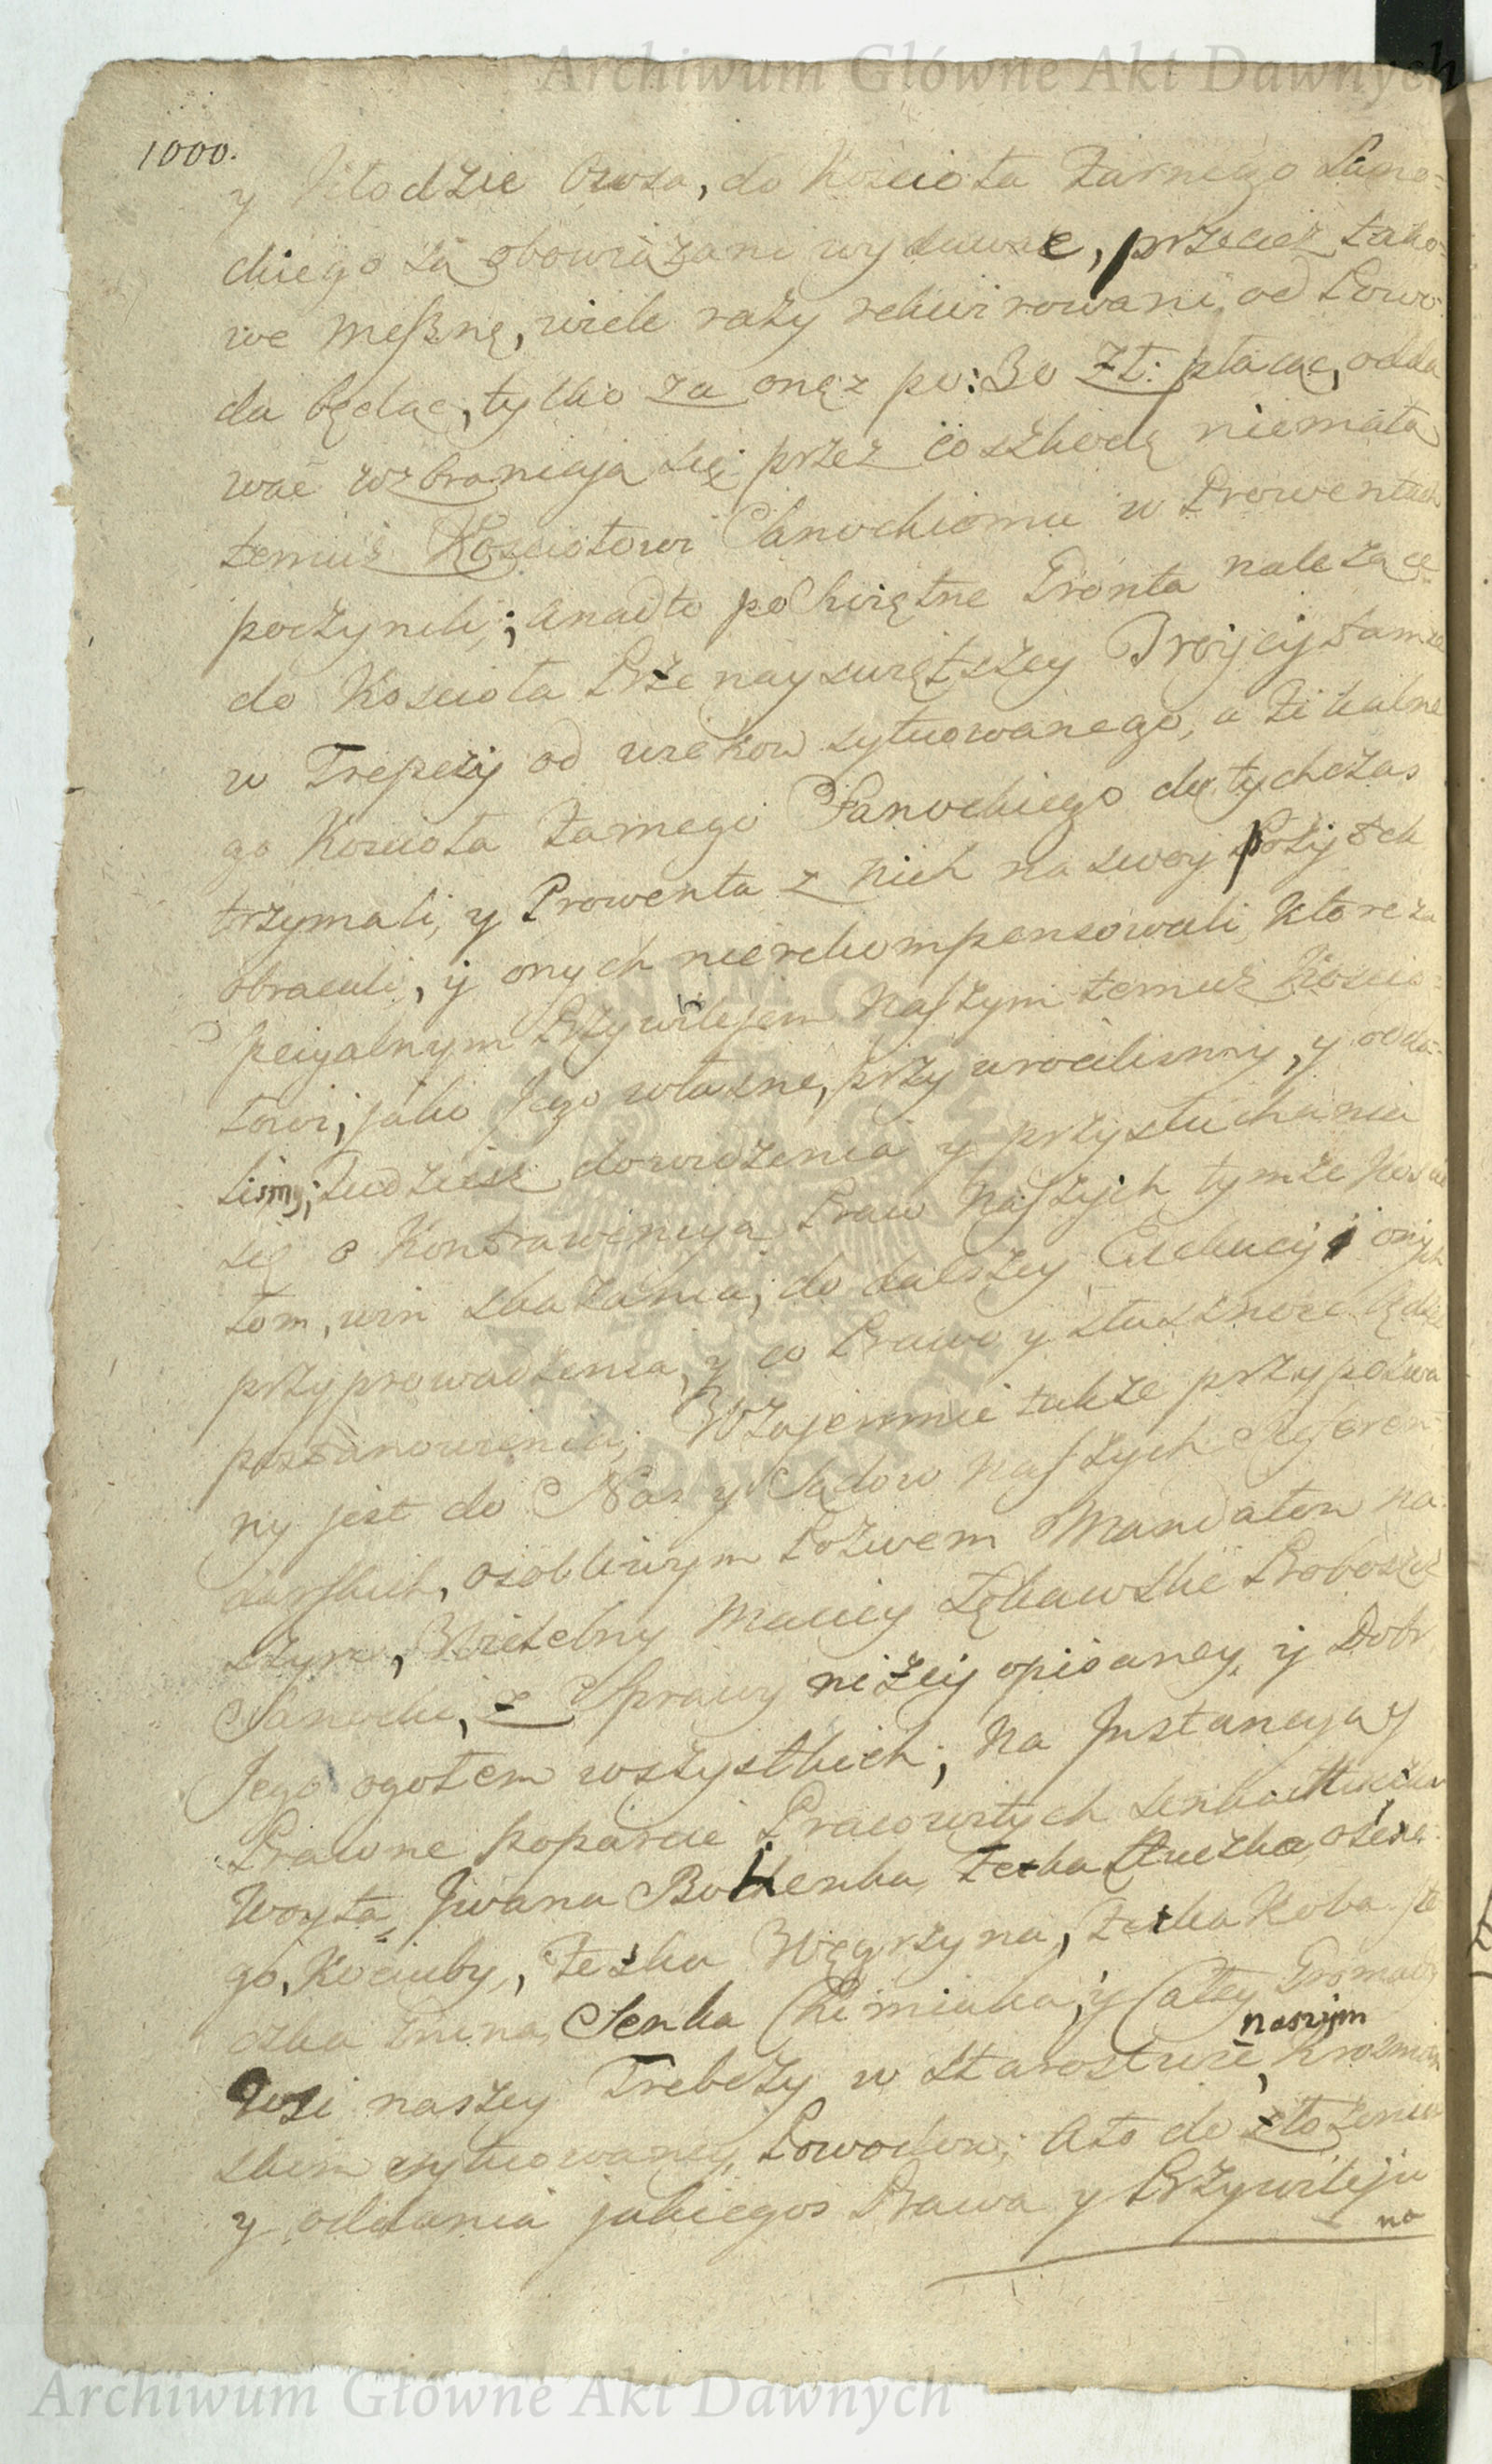 Archiwum Główne Akt Dawnych
1000.
y Kłodzie Owsa, do Kościoła Farnego Sano-
ckiego są obowiązani wydawac, przeciez tako-
we Meszne, wiele razy rekwirowani od Powo-
da będąc, tylko za onęz po: 30 Zł: płacąc, odda
wac wzbraniaja się; przez co szkodę niemałą
temuż Kościołowi Sanockiemu w Prowentach
poczynili; a nadto poświętne Gronta należące
do Kościoła Przenayswiętszey Troycy tamze
w Trepczy od wiekow sytuowanego, a
go Kosciota Farnego Sanockiego dotychczas
trzymali, y Prowenta z nich na swoy pożytek
obracali, y onych nierekompensowali, ktore za
pecyalnym Przywilejem Naszym temuż Kościo-
łowi, jako Jego własne, przywrociliśmy, y odda-
lismy; Tudziesz dowidzenia y przysłuchania
się o Kontrawencyą Praw Naszych tymże
tom, win skazania, do dalszey Exekucyi onych
przyprowadzenia, y co Prawo y słuszność będzie
postanowienia; Wzajemnie także przypozwa
ny jest do Nas y Sądow Naszych Referen-
darskich, osobliwym Pozwem Mandatem na-
szym, Wielebny Maciey Łękawski Proboszcz
Sanocki, z Sprawy niżey opisaney, y Dobr
Jego ogołem wszystkich; Na Instancyą y
Prawne poparcie Pracowitych Senka
Woyta, Iwana Fecka Hruszka
go, Kociuby, Fecka Węgrzyna, Fecka
Senka Chemiaka, y Całey Gromady
Wsi naszey Trebczy w Starostwie naszym
skim sytuowaney, Powodow; Ato do złożenia
y oddania jakiegos Prawa y Przywileju
na
Archiwum Główne Akt Dawnych